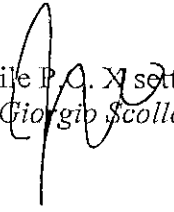 ile P.O. X sett
Giorgio Scolle